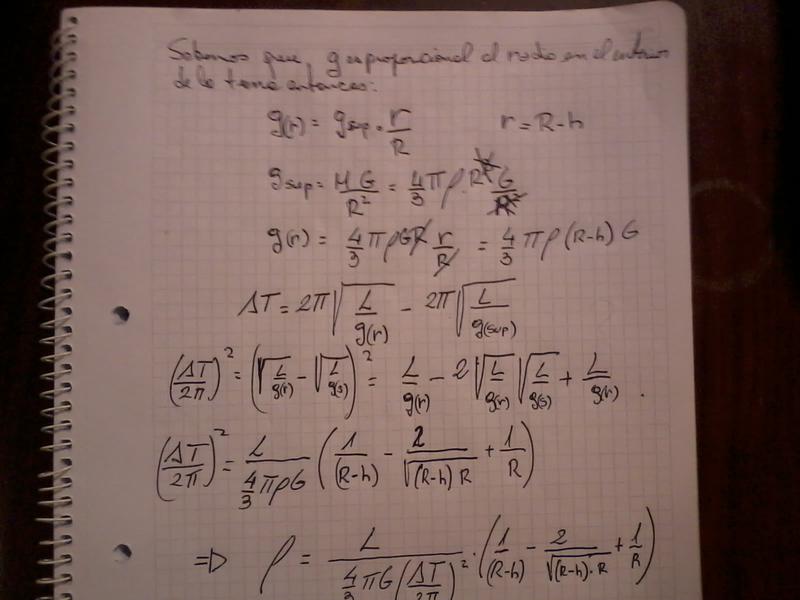 Sabemos que g es proporcional al radio en el interior
de la tierra entonces:
g(r) = g_sup · r/R    r = R-h
g_sup = MG/R² = 4/3 π ρ · R G
g(r) = 4/3 π ρ G R r/R = 4/3 π ρ (R-h) G
ΔT = 2π √(L/g(r)) - 2π √(L/g(sup))
(ΔT/2π)² = (√(L/g(r)) - √(L/g(s)))² = L/g(r) - 2 √(L/g(r)) √(L/g(s)) + L/g(r) .
(ΔT/2π)² = L/(4/3 π ρ G) (1/(R-h) - 2/√((R-h) R) + 1/R)
=> ρ = L/(4/3 π G (ΔT/2π)²) · (1/(R-h) - 2/√((R-h)·R) + 1/R)